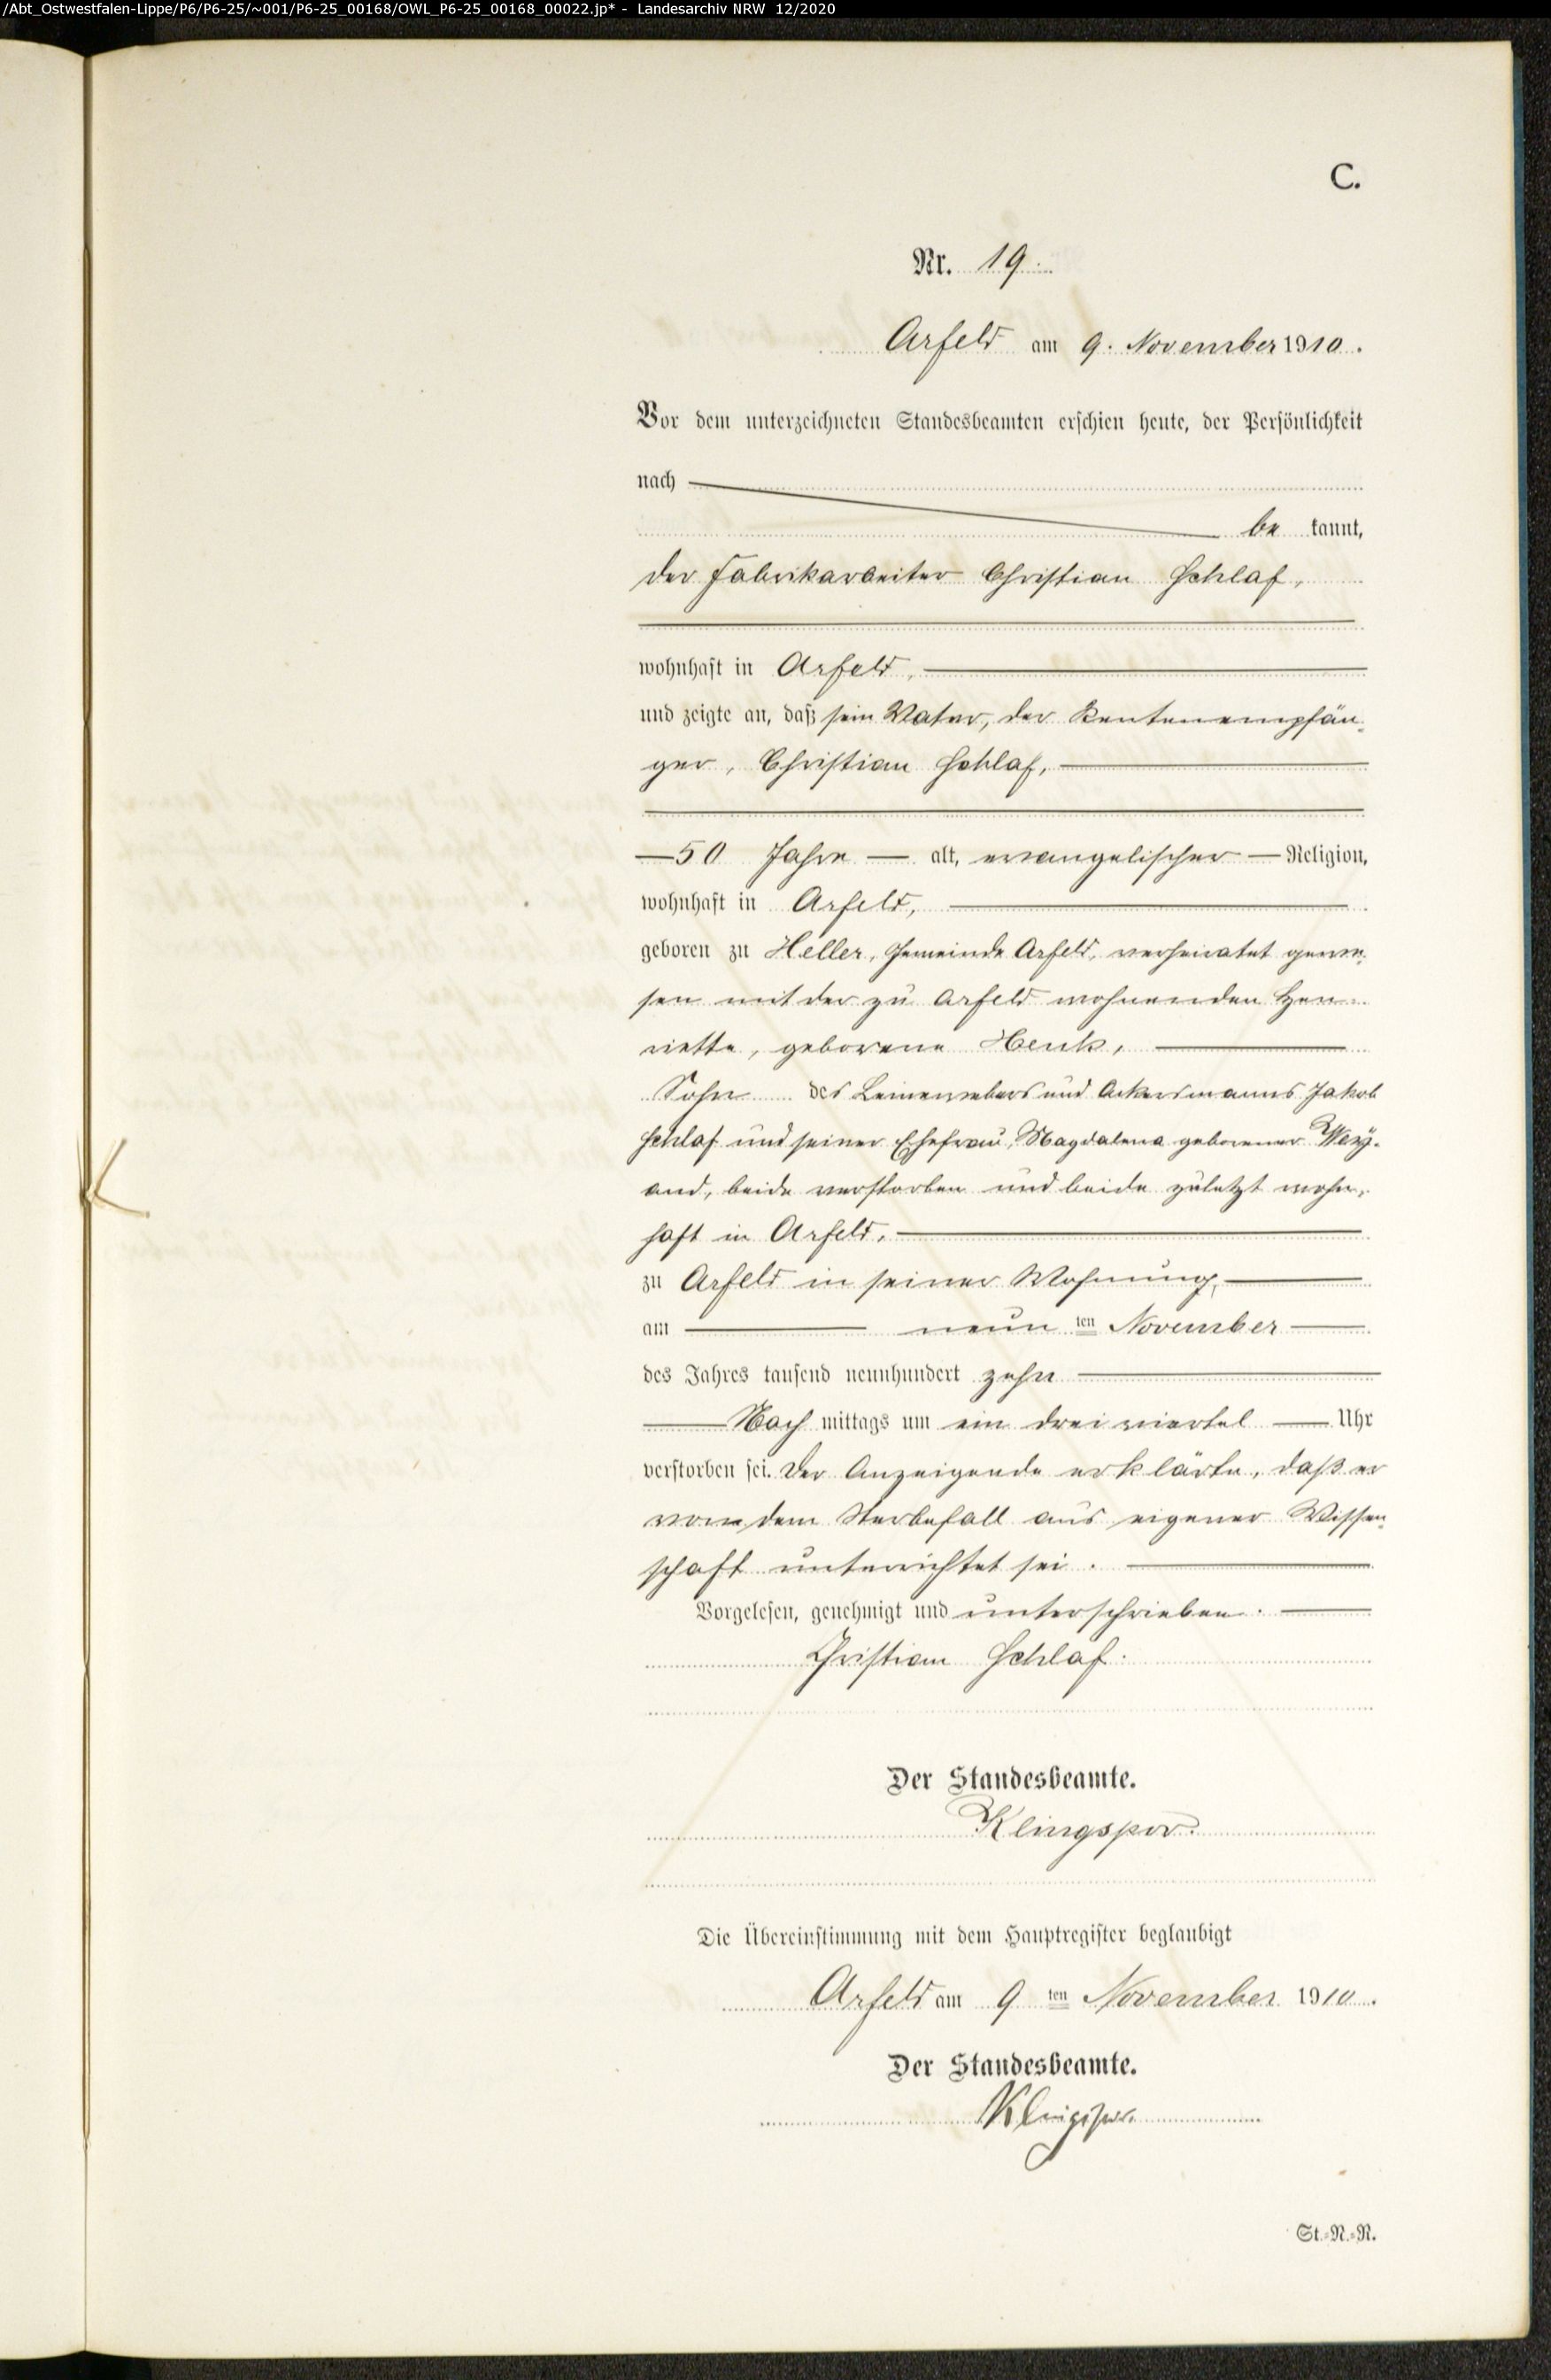 /Abt_Ostwestfalen-Lippe/P6/P6-25/~001/P6-25_00168/OWL_P6-25_00168_00022.jp* - Landesarchiv NRW 12/2020
C.
Nr. 19.
Arfeld am 9. November 1910.
Vor dem unterzeichneten Standesbeamten erschien heute, der Persönlichkeit
nach
be kannt,
der Fabrikarbeiter Christian Schlaf,
wohnhaft in Arfeld,
und zeigte an, daß sein Vater, der Rentenempfän-
ger, Christian Schlaf,
50 Jahre alt, evangelischer Religion,
wohnhaft in Arfeld,
geboren zu Heller, Gemeinde Arfeld, verheiratet gewe-
sen mit der zu Arfeld wohnenden Hen-
riette, geborene Henk,
Sohn des Leinewebers und Ackersmanns Jakob
Schlaf und seiner Ehefrau, Magdalena geborener Wey-
and, beide verstorben und beide zuletzt wohn-
haft in Arfeld,
zu Arfeld in seiner Wohnung,
am neun ten November
des Jahres tausend neunhundert zehn
Nach mittags um ein drei viertel Uhr
verstorben sei. Der Anzeigende erklärte, daß er
von dem Sterbefall aus eigener Wissen-
schaft unterrichtet sei.
Vorgelesen, genehmigt und unterschrieben.
Christian Schlaf.
Der Standesbeamte.
Klingspor.
Die Übereinstimmung mit dem Hauptregister beglaubigt
Arfeld am 9 ten November 1910.
Der Standesbeamte.
Klingspor.
St.-N.-R.